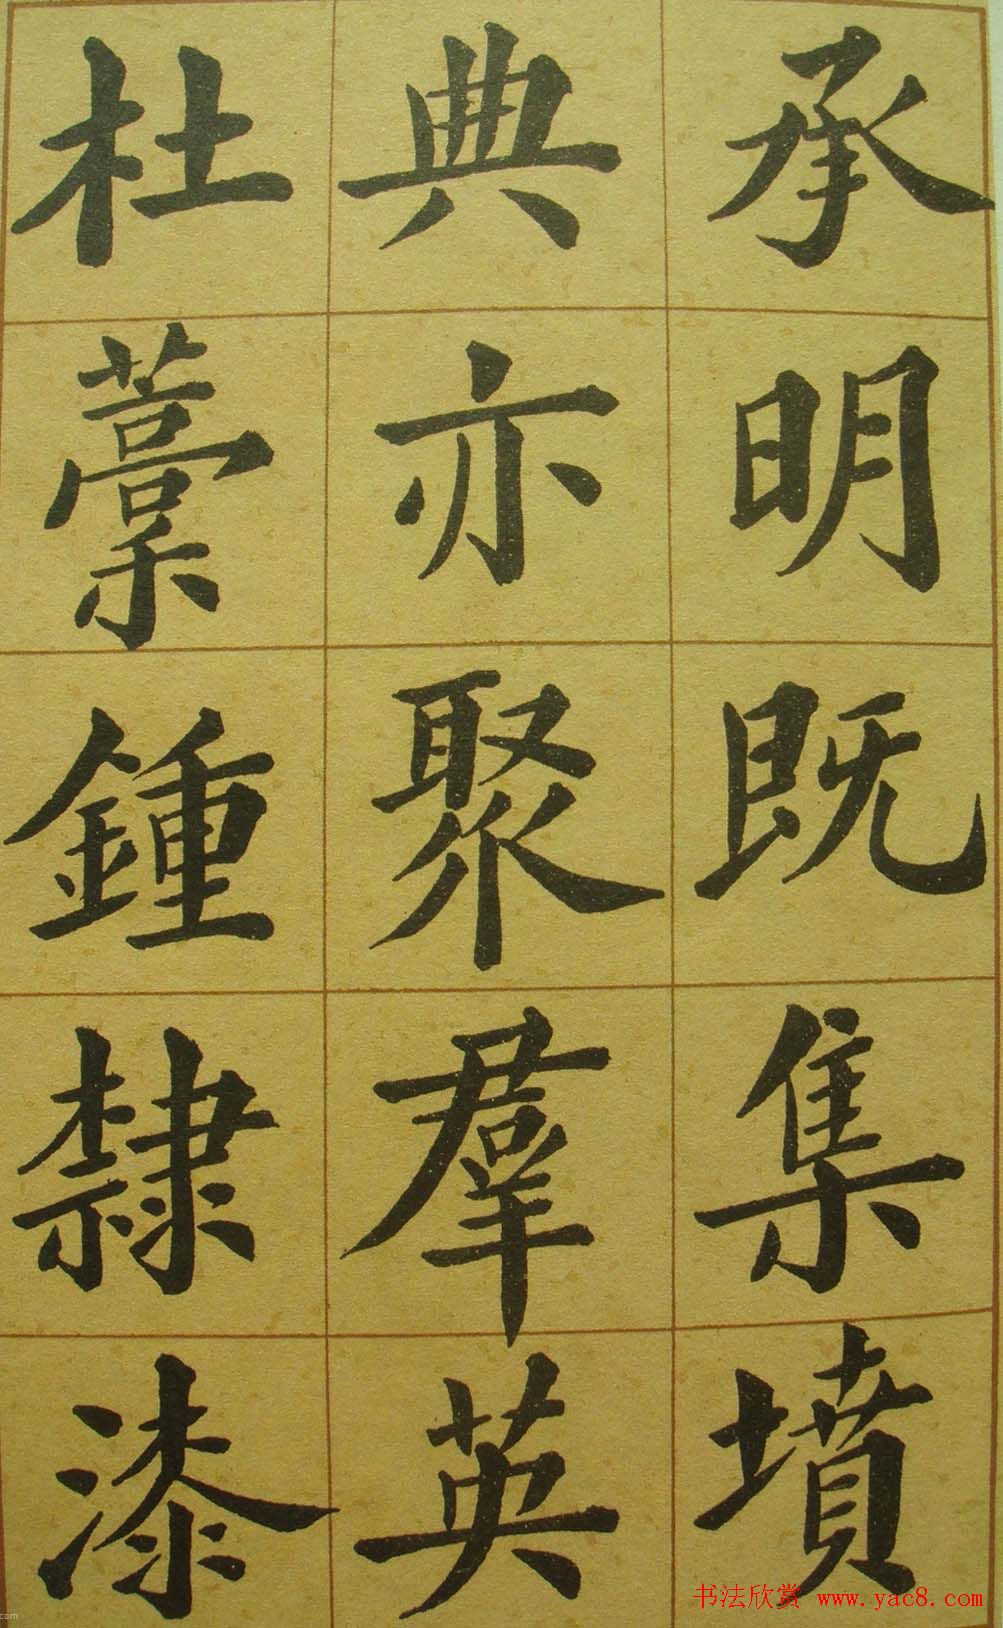 承明既集墳
典亦聚羣英
杜藁鍾隸漆
书法欣赏 www.yac8.com
.com